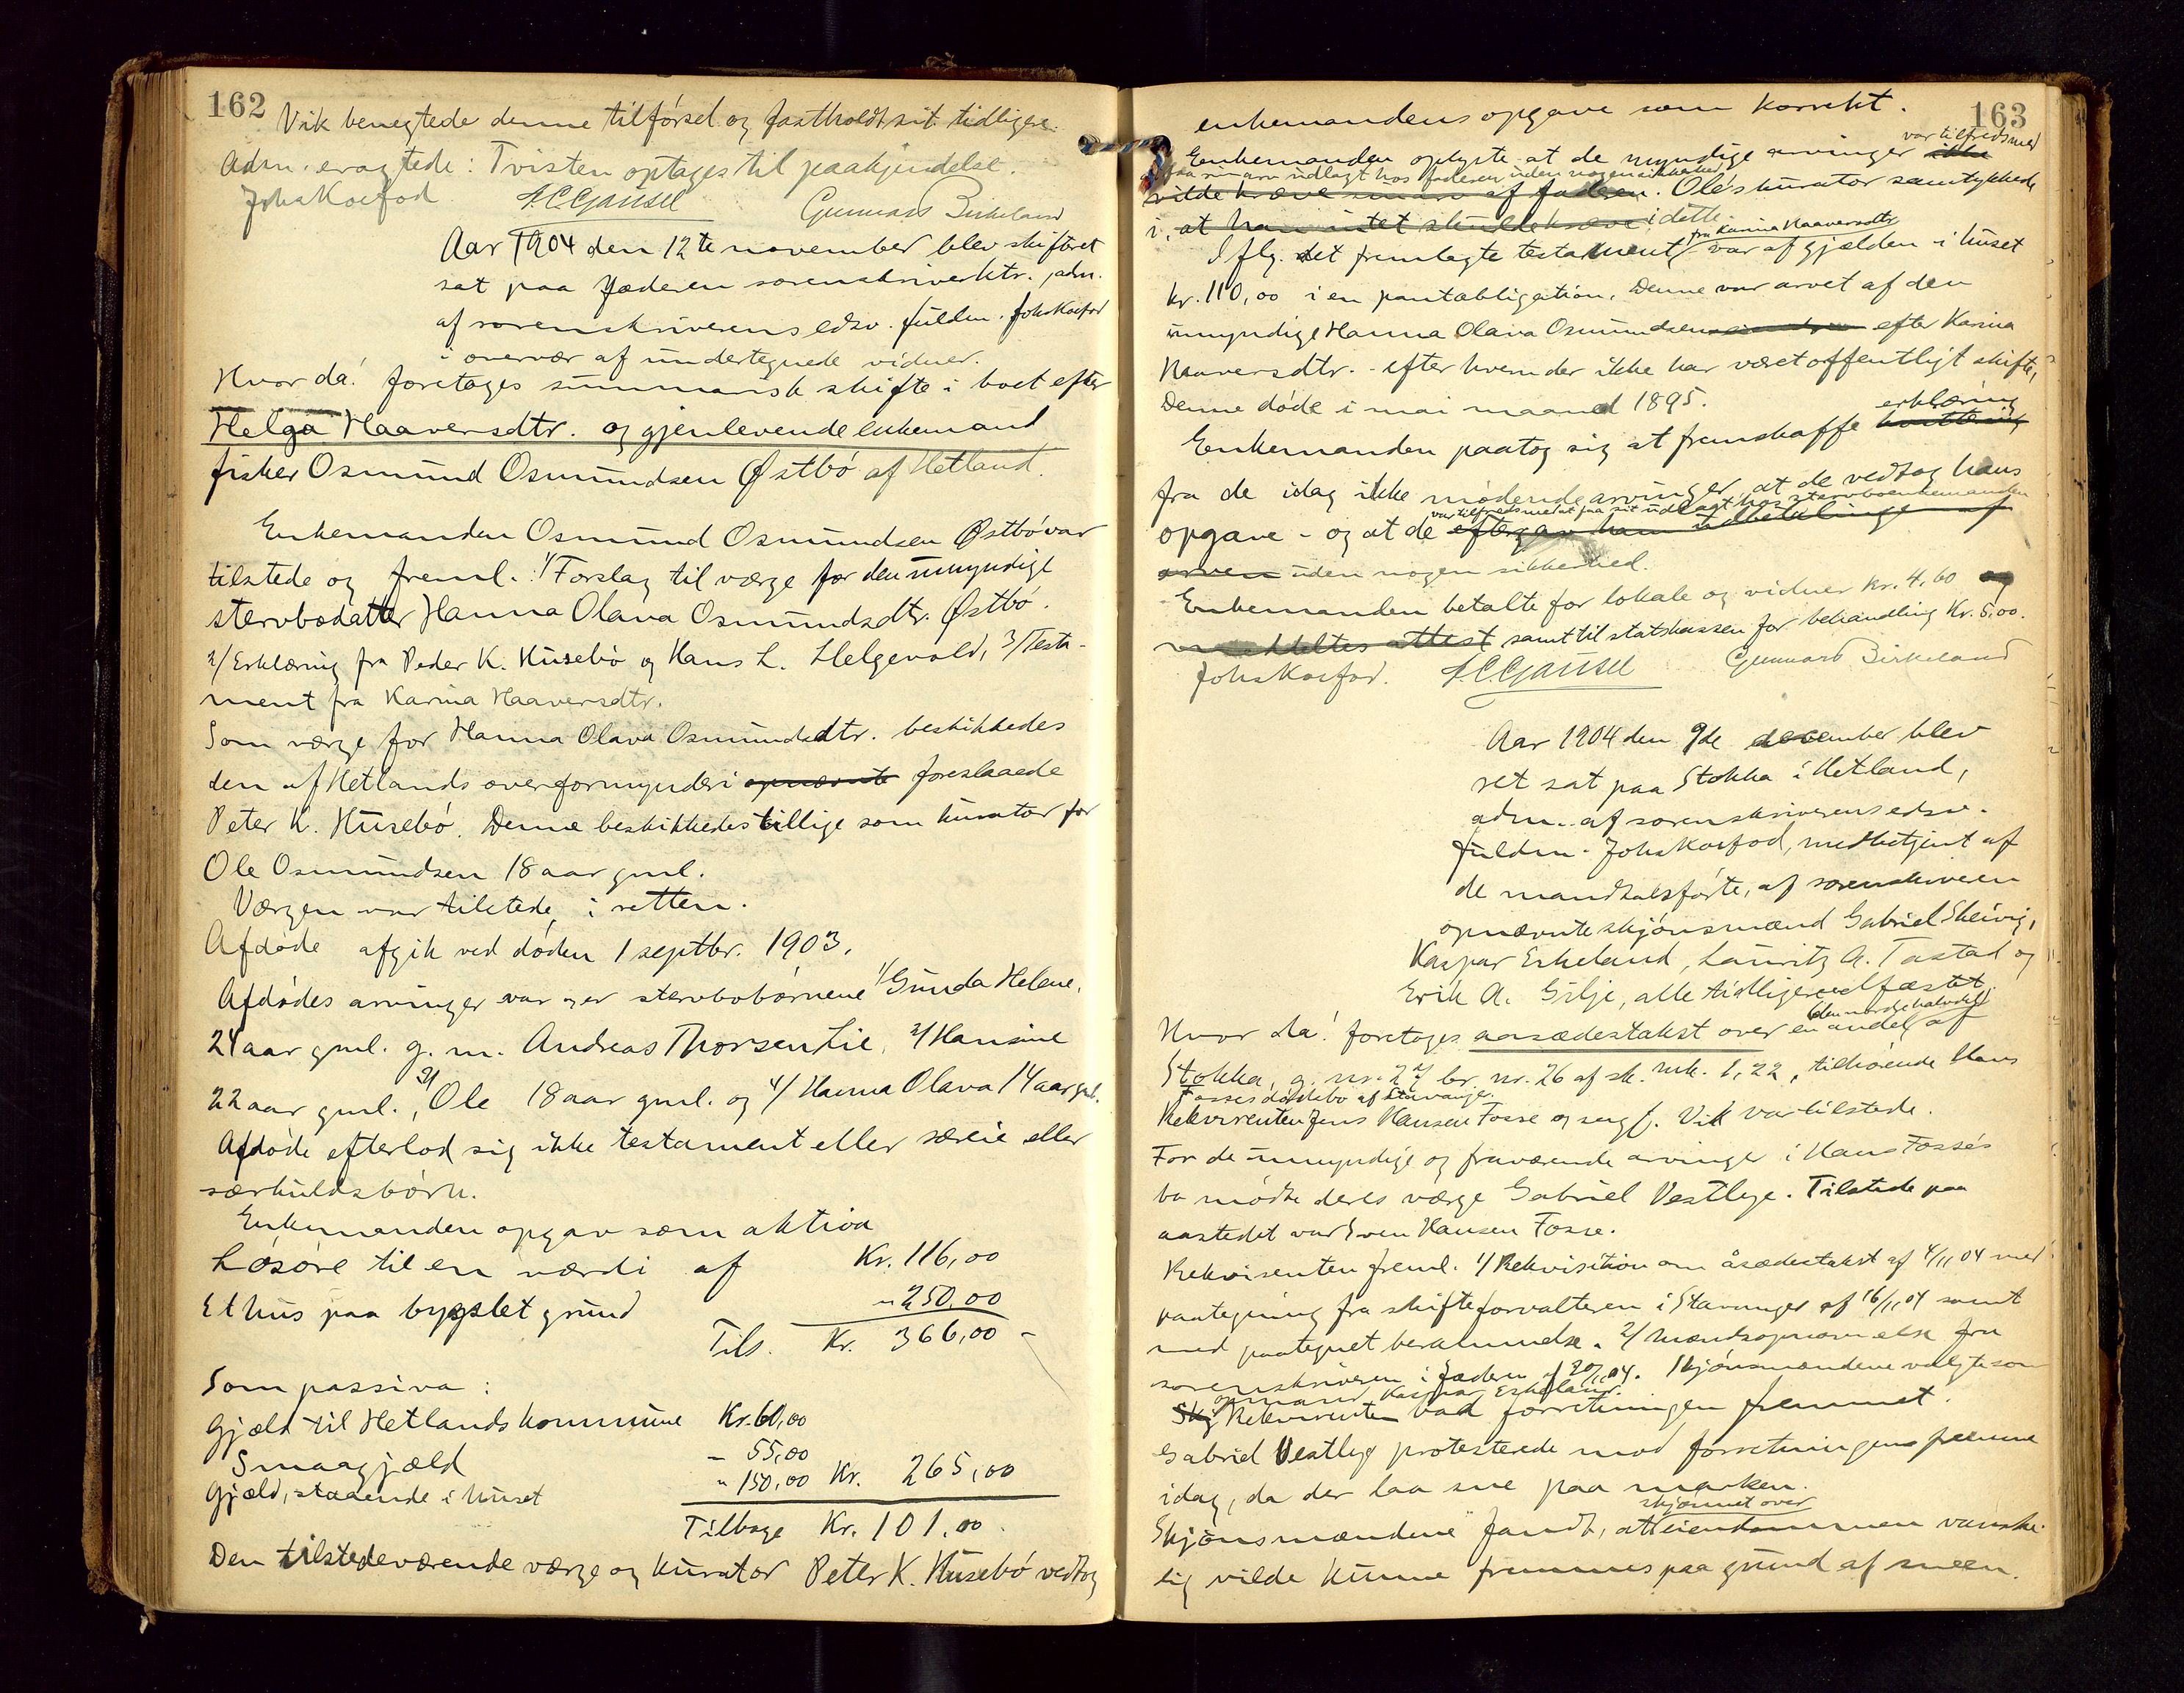 162
Vik benegtede denne tilførsel og fastholdt sit tidligere.
Adm. eragtede: Tvisten optages til paakjendelse.
Johs Koefod H.C. Gausel Gunnars Birkeland
Aar 1904 den 12te november blev skifteret
sat paa Jæderen sorenskriverktr., adm.
af sorenskriverens edsv. fuldm. Johs Koefod
i overvær af undertegnede vidner.
Hvor da! foretoges summarisk skifte i boet efter
Helga Haaversdtr. og gjenlevende enkemand
fisker Osmund Osmundsen Østbø af Hetland.
Enkemanden Osmund Osmundsen Østbø var
tilstede og freml. 1/ Forslag til værge for den umyndige
stervbodatter Hanna Olava Osmundsdtr. Østbø.
2/ Erklæring fra Peder K. Husebø og Hans L. Helgevold, 3/ Testa-
ment fra Karina Haaversdtr.
Som værge for Hanna Olava Osmundsdtr. beskikkedes
den af Hetlands overformynderi opnævnte foreslaaede
Peter K. Husebø. Denne beskikkedes tillige som kurator for
Ole Osmundsen 18 aar gml.
Værgen var tilstede i retten.
Afdøde afgik ved døden 1 septbr. 1903.
Afdødes arvinger var og er stervbobørnene 1/ Gunda Helene,
24 aar gml. g. m. Andreas Thorsen Lie, 2/ Hansine
22 aar gml., 3/ Ole 18 aar gml. og 4/ Hanna Olava 14 aar gml.
Afdøde efterlod sig ikke testament eller særeie eller
særkuldsbørn.
Enkemanden opgav som aktiva
Løsøre til en værdi af Kr. 116,00
Et hus paa bygslet grund " 250,00
Tils. Kr. 366,00 -
Som passiva:
Gjæld til Hetlands kommune Kr. 60,00
Smaagjæld - 55,00
Gjæld, staaende i huset " 150,00 Kr. 265,00
Tilbage Kr. 101,00.
Den tilstedeværende værge og kurator Peter K. Husebø vedtog
163
enkemandens opgave som korrekt.
var tilfreds med
Enkemanden oplyste at de myndige arvinger ikke
faa sin arv udlagt hos faderen uden nogen sikkerhed
vilde kræve sin arv af faderen. Ole's kurator samtykkede
i, at han intet skulde kræve i dette.
fra Karina Haaversdtr.
Iflg. det fremlagte testament var af gjælden i huset
kr. 110,00 i en pantobligation. Denne var arvet af den
umyndige Hanna Olava Osmundsen efter Karina
Haaversdtr. - efter hvem der ikke har været offentligt skifte,
Denne døde i mai maaned 1895.
erklæring
Enkemanden paatog sig at fremskaffe kvittering
fra de idag ikke mødende arvinger, at de vedtog hans
var tilfreds med at faa sit udlagt hos stervboenkemanden
opgave - og at de eftergav ham udbetalinge af
arven uden nogen sikkerhed.
Enkemanden betalte for lokale og vidner kr. 4,60 og
meddeltes attest samt til statskassen for behandling Kr. 5,00.
Johs Koefod. H.C. Gausel Gunnars Birkeland
Aar 1904 den 9de december blev
ret sat paa Stokka i Hetland,
adm. af sorenskriverens edsv.
fuldm. Johs Koefod, medbetjent af
de mandtalsførte, af sorenskriveren
opnævnte skjønsmænd Gabriel Skeivig,
Kaspar Eskeland, Lauritz A. Tastad og
Erik A. Gilje, alle tidligere edfæstet
(den nordre halvdel)
Hvor da! foretoges aasædestakst over en andel af
Stokka, g. nr. 27 br. nr. 26 af sk. mk. 1,22, tilhørende Hans
Fosses dødsbo af Stavanger.
Rekvirenten Jens Hansen Fosse og sagf. Vik var tilstede.
For de umyndige og fraværende arvinger i Hans Fosses
bo mødte deres værge Gabriel Vestlye. Tilstede paa
aastedet var Sven Hansen Fosse.
Rekvirenten freml. 1/ Rekvisition om åsædestakst af 4/11 04 med
paategning fra skifteforvalteren i Stavanger af 16/11 04 samt
med paategnet berammelse. 2/ Mændsopnævnelse fra
sorenskriveren i Jæderen af 20/11 04. Skjønsmændene valgte som
opmand Kaspar Eskeland.
Skj Rekvirenten bad forretningen fremmet.
Gabriel Vestlye protesterede mod forretningens fremme
idag, da der laa sne paa marken.
skjønnet over
Skjønsmændene fandt, at eiendommen vanske-
lig vilde kunne fremmes paa grund af sneen.